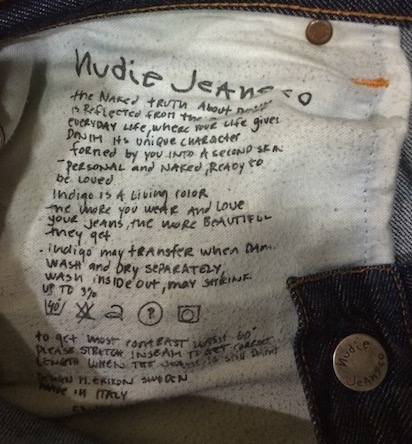 Nudie Jeans co
the NAKED tRUtH About
is REFLECTED FROM the
EVERYDAY LIFE, WHERE YOUR LIFE gives
DENIM its UNIQUE CHARACTER
FORMED by YOU INTO A SECOND SKIN
- PERSONAL and NAKED, READY to
be LOVED
INDIGO IS A LIVING COLOR
the MORE YOU WEAR AND LOVE
YOUR JEANS, the MORE BEAUTIFUL
they get
. INDIGO may tRANSFER WHEN DAMP.
WASH and DRY SEPARATELY,
WASH INSIDE OUT, may SHRINK
UP TO 3%
40° P
to get most CONTRAST WASH 60°
PLEASE STRETCH INSEAM to GET CORRECT
LENGTH WHEN THE JEANS IS STILL DAMP
DESIGN M. ERIXON SWEDEN
MADE IN ITALY
Nudie
Jeans co